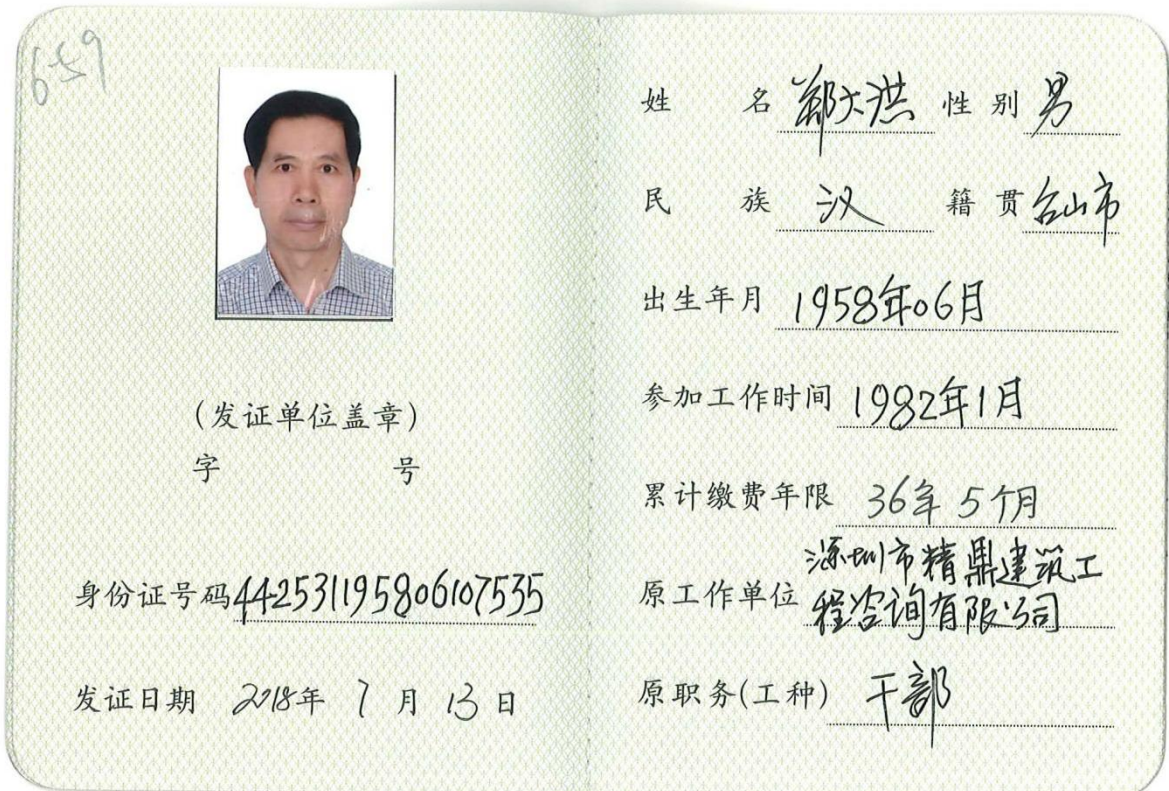 659
(发证单位盖章)
字 号
身份证号码 442531195806107535
发证日期 2018年 7 月 13 日
姓 名 郑大洪 性别 男
民 族 汉 籍贯 台山市
出生年月 1958年06月
参加工作时间 1982年1月
累计缴费年限 36年5个月
原工作单位 深圳市精鼎建筑工
程咨询有限公司
原职务(工种) 干部